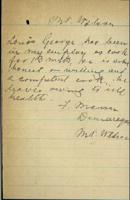 Mt. Wilson
Louis George has been
in my employ as cook
for 18 mths. He is
honest & willing and
a competent cook. He
leaves owing to ill
health.
Mt. Wilson